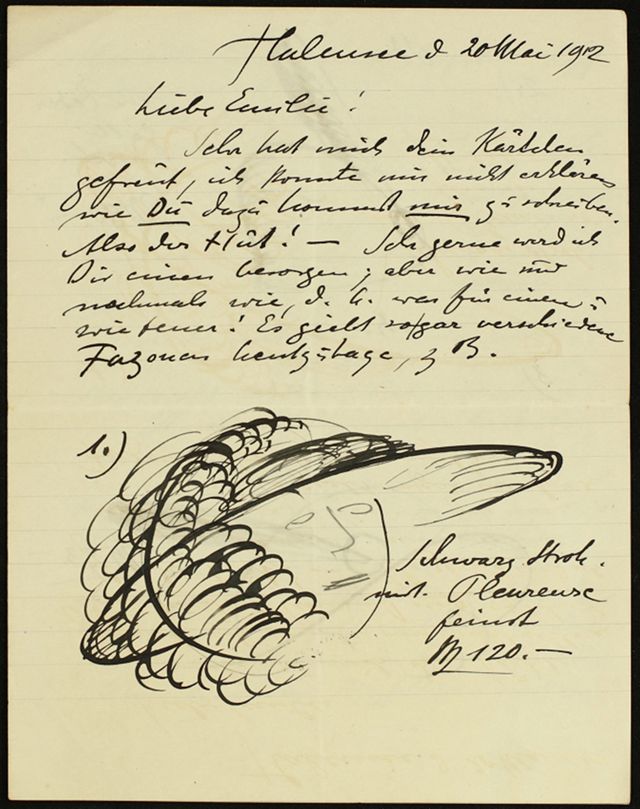 Halensee d 20 Mai 1912
Liebe Emilie!
Sehr hat mich dein Kärtchen
gefreut, ich konnte mir nicht erklären
wie Du dazu kommst mir zu schreiben.
Also der Hut! — Sehr gerne werd ich
Dir einen besorgen; aber wie und
nochmals wie, d. h. was für einen u
wie teuer! Es giebt sogar verschiedene
Fazonen heutzutage, z B.
1.)
Schwarz Stroh.
mit Pleureuse
feinst
M 120.—